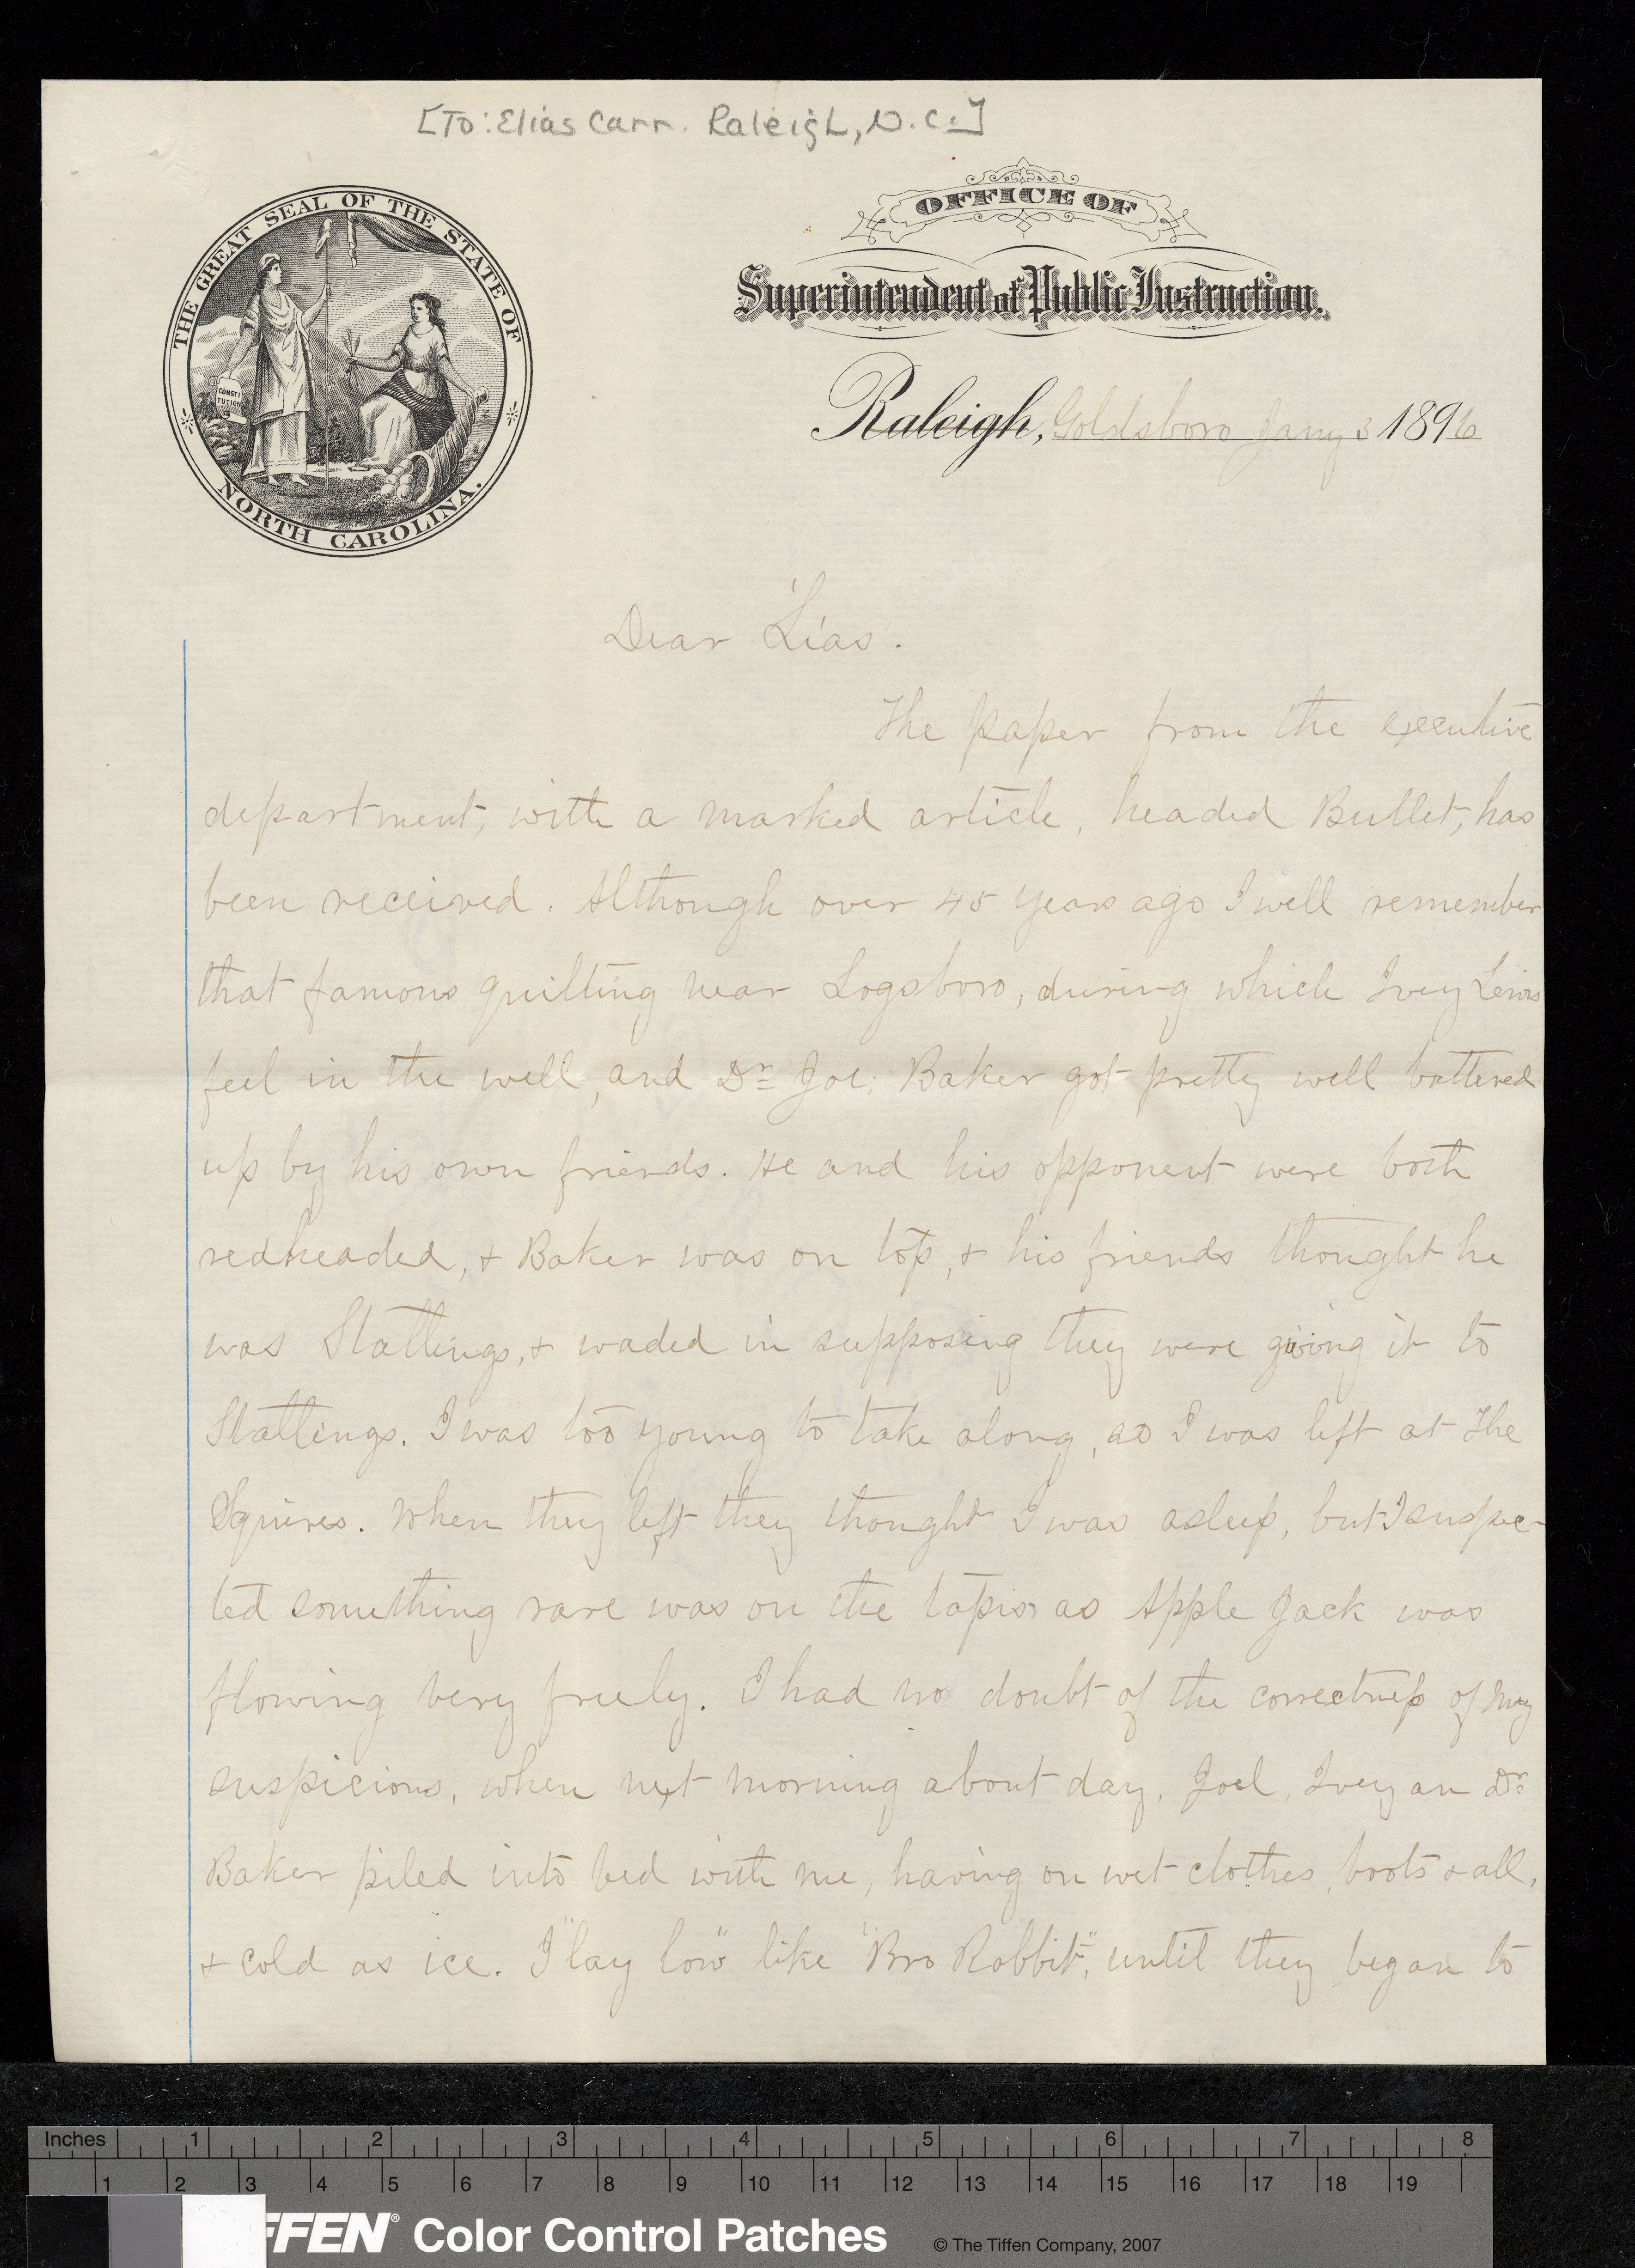 [To: Elias Carr. Raleigh, N.C.]
THE GREAT SEAL OF THE STATE OF
NORTH CAROLINA.
CONSTI
TUTION
OFFICE OF
Superintendent of Public Instruction.
Raleigh, Goldsboro Jany 3 1896
Dear 'Lias.
The paper from the executive
department, with a marked article, headed Bullet, has
been received. Although over 45 years ago I well remember
that famous quilting near Logsboro, during which Ivey Lewis
feel in the well, and Dr Joe: Baker got pretty well battered
up by his own friends. He and his opponent were both
redheaded, & Baker was on top, & his friends thought he
was Stallings, & waded in supposing they were giving it to
Stallings. I was too young to take along, so I was left at the
Squires. When they left they thought I was asleep, but I suspec-
ted something rare was on the tapis as Apple Jack was
flowing very freely. I had no doubt of the correctness of my
suspicions, when next morning about day, Joel, Ivey an Dr.
Baker piled into bed with me, having on wet clothes, boots & all,
& cold as ice. I "lay low" like "Bro Rabbit", until they began to
Inches 1 2 3 4 5 6 7 8
1 2 3 4 5 6 7 8 9 10 11 12 13 14 15 16 17 18 19
FFEN® Color Control Patches © The Tiffen Company, 2007